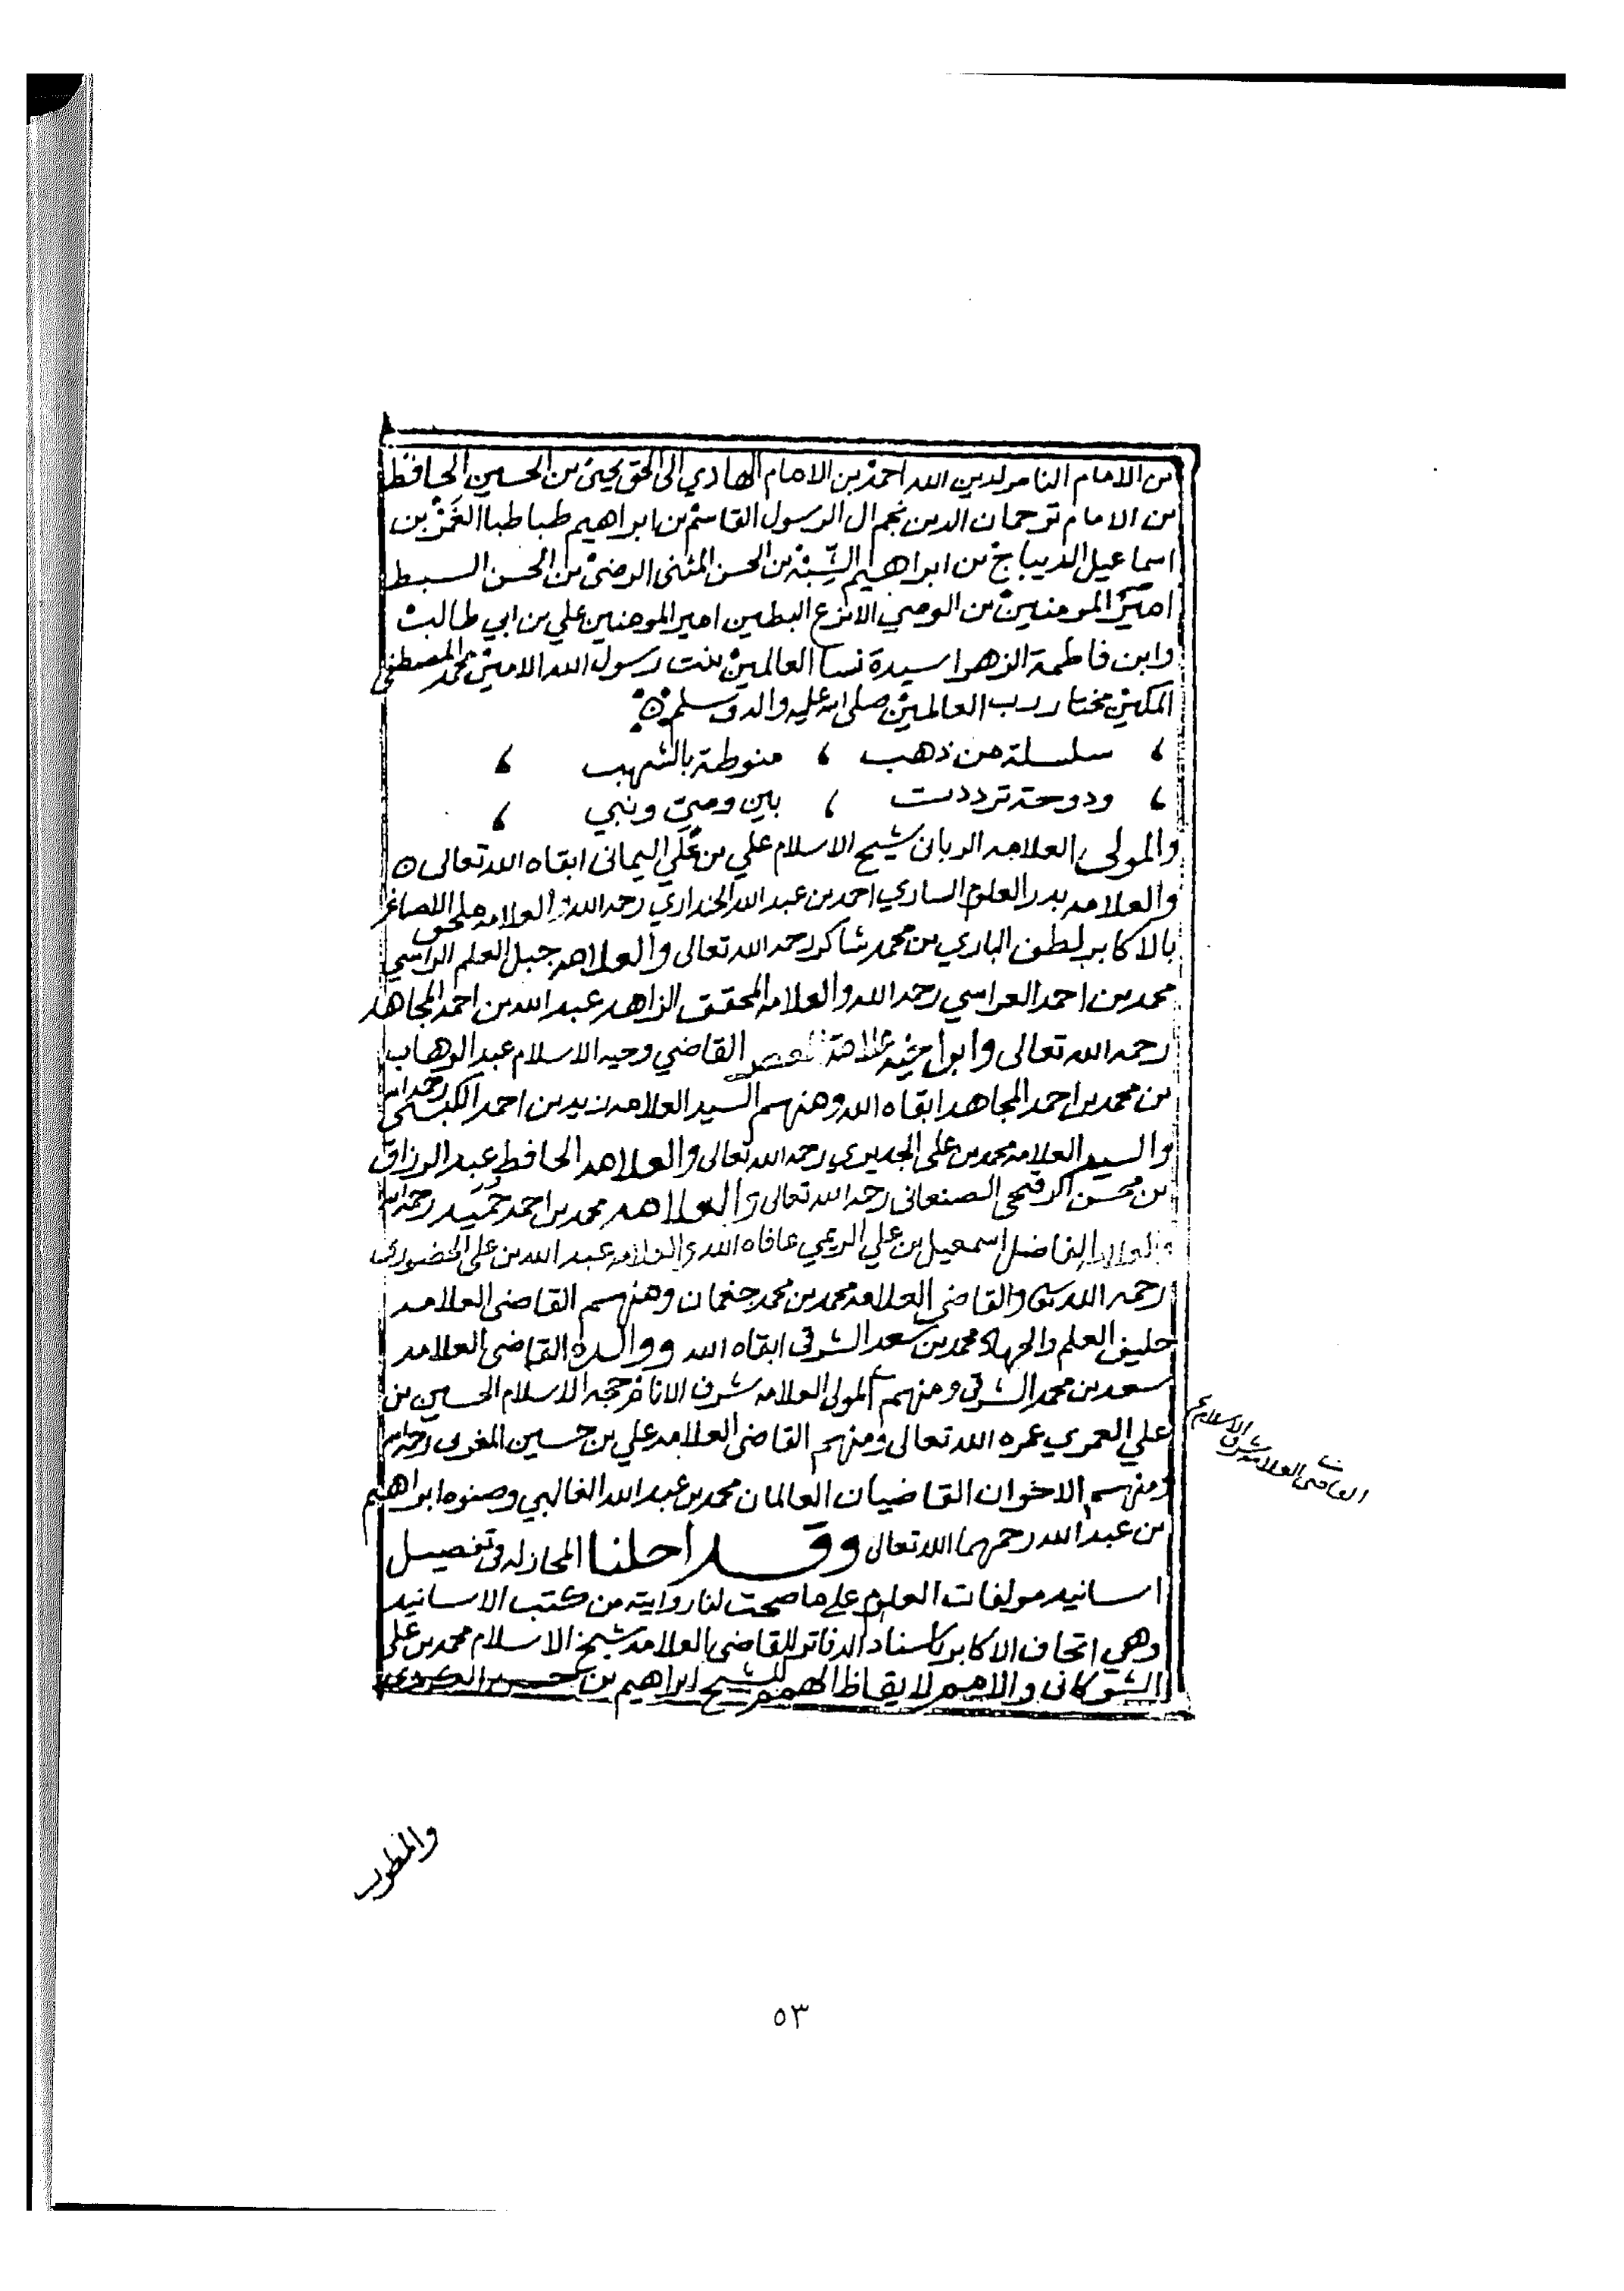 بن الامام الناصر لدين الله احمد بن الامام الهادي الى الحق يحيى بن الحسين الحافظ
بن الامام ترجمان الدين نجم ال الرسول القاسم بن ابراهيم طباطبا الغمر بن
اسماعيل الديباج بن ابراهيم الشبه بن الحسن المثنى الرضى بن الحسن السبط
امير المومنين بن الوصي الانزع البطين امير المومنين علي بن ابي طالب
وابن فاطمة الزهرا سيدة نسا العالمين بنت رسول الله الامين محمد المصطفى
المكين مختار رب العالمين صلى الله عليه واله وسلم
، سلسلة من ذهب ، منوطة بالشهب ،
، ودوحة ترددت ، بين وصي ونبي ،
والمولى العلامه الربان شيخ الاسلام علي بن علي اليمانى ابقاه الله تعالى
والعلامه بدر العلم الساري احمد بن عبد الله الجنداري رحمه الله والعلامه ملحق الاصاغر
بالاكابر لطف الباري بن محمد شاكر رحمه الله تعالى والعلامه جبل العلم الراسي
محمد بن احمد العراسي رحمه الله والعلامه المحقق الزاهد عبد الله بن احمد المجاهد
رحمه الله تعالى وابن اخيه علامة العصر القاضي وجيه الاسلام عبد الوهاب
بن محمد بن احمد المجاهد ابقاه الله ومنهم السيد العلامه زيد بن احمد الكبسي رحمه الله
والسيد العلامه محمد بن علي الجديري رحمه الله تعالى والعلامه الحافظ عبد الرزاق
بن محسن الرقيحي الصنعانى رحمه الله تعالى والعلامه محمد بن احمد حميد رحمه الله
والعلامه الفاضل اسمعيل بن علي الريمي عافاه الله والعلامه عبد الله بن علي الحضوري
رحمه الله تعالى والقاضي العلامه محمد بن محمد جغمان ومنهم القاضي العلامه
حليف العلم والجهاد محمد بن سعد الشرقي ابقاه الله ووالده القاضي العلامه
سعد بن محمد الشرقي ومنهم المولى العلامه شرف الانام حجة الاسلام الحسين بن
علي العمري عمره الله تعالى ومنهم القاضي العلامه علي بن حسين المغربى رحمه الله
القاضي العلامه شرف الاسلام
ومنهم الاخوان القاضيان العالمان محمد بن عبد الله الغالبي وصنوه ابراهيم
بن عبد الله رحمهما الله تعالى وقد احلنا المجاز له فى تفصيل
اسانيد مولفات العلوم على ما صحت لنا روايته من كتب الاسانيد
وهي اتحاف الاكابر باسناد الدفاتر للقاضي العلامة شيخ الاسلام محمد بن علي
الشوكانى والامم لايقاظ الهمم للشيخ ابراهيم بن حسن الكردي
٥٣